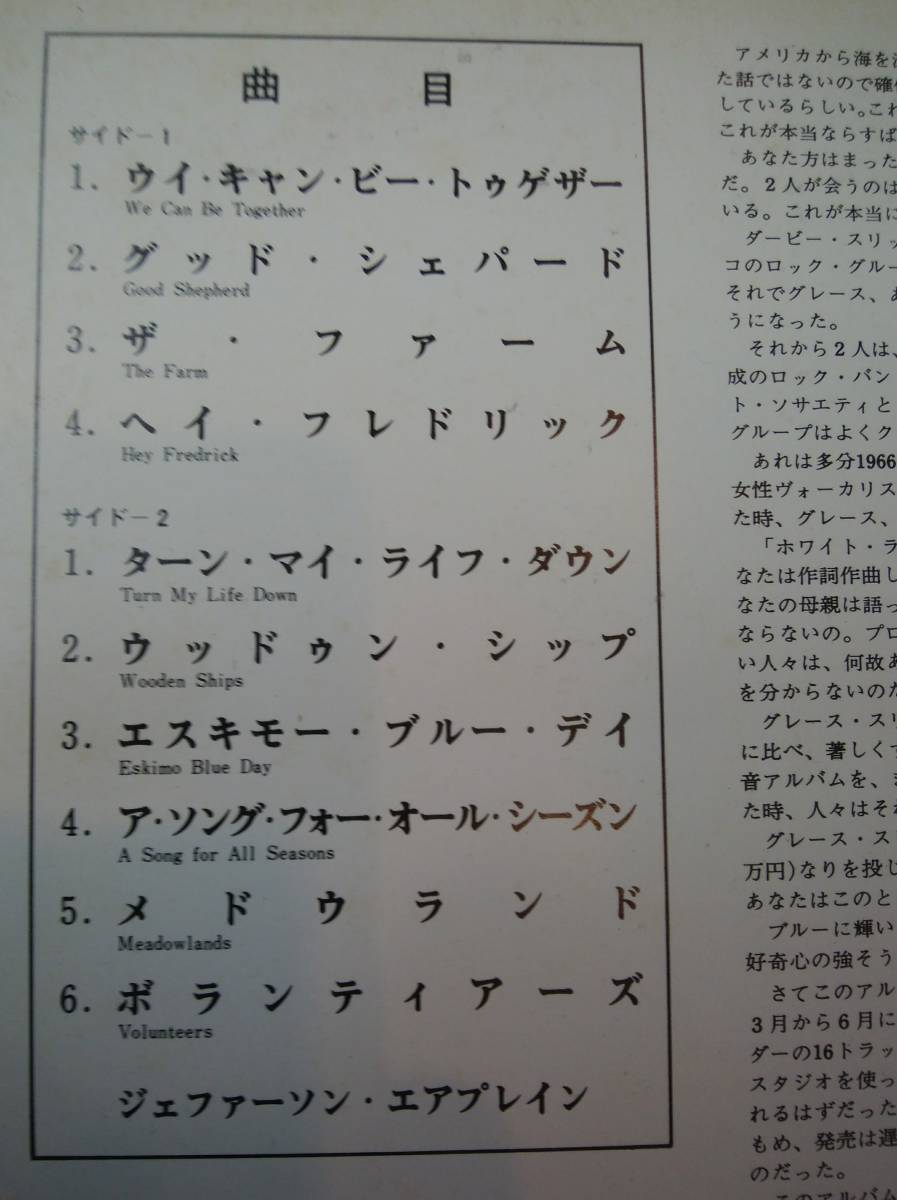 曲目
サイド－1
1. ウイ・キャン・ビー・トゥゲザー
We Can Be Together
2. グッド・シェパード
Good Shepherd
3. ザ・ファーム
The Farm
4. ヘイ・フレドリック
Hey Fredrick
サイド－2
1. ターン・マイ・ライフ・ダウン
Turn My Life Down
2. ウッドゥン・シップ
Wooden Ships
3. エスキモー・ブルー・デイ
Eskimo Blue Day
4. ア・ソング・フォー・オール・シーズン
A Song for All Seasons
5. メドウランド
Meadowlands
6. ボランティアーズ
Volunteers
ジェファーソン・エアプレイン
アメリカから海を
た話ではないので確
しているらしい。これ
これが本当ならすば
あなた方はまった
だ。2人が会うのは
いる。これが本当に
ダービー・スリッ
コのロック・グルー
それでグレース、
うになった。
それから2人は、
成のロック・バン
ト・ソサエティと
グループはよくク
あれは多分1966
女性ヴォーカリス
た時、グレース、
「ホワイト・ラ
なたは作詞作曲し
なたの母親は語っ
ならないの。プロ
い人々は、何故あ
を分からないのた
グレース・スリ
に比べ、著しくて
音アルバムを、
た時、人々はそれ
グレース・ス
万円)なりを投じ
あなたはこのと
ブルーに輝い
好奇心の強そう
さてこのアル
3月から6月に
ダーの16トラッ
スタジオを使っ
れるはずだった
もめ、発売は遅
のだった。
このアルバム